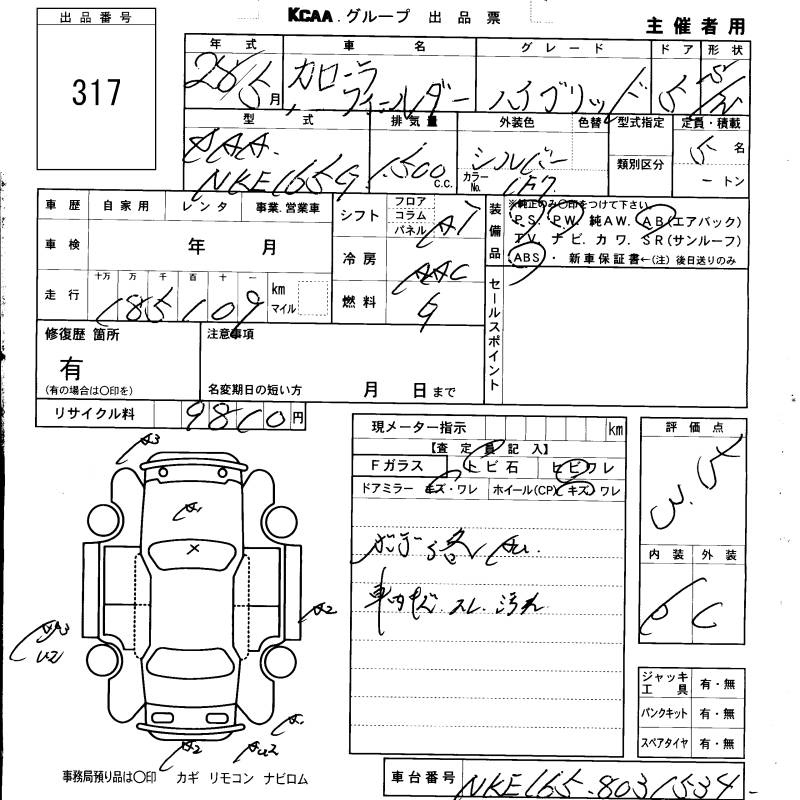 KCAA.グループ 出品票
主催者用
出品番号
317
年式 車名 グレード ドア 形状
28/5月 カローラ フィールダー ハイブリッド 5
型式 排気量 外装色 色替 型式指定 定員・積載
DAA-
NKE165G 1,500 c.c. シルバー
カラーNo. 1F7
類別区分
5名
トン
車歴 自家用 レンタ 事業.営業車
車検 年 月
走行 十万 万 千 百 十 一
185109 km マイル
シフト フロア コラム パネル AT
冷房 AAC
燃料 G
装備品
※純正のみ〇印をつけて下さい
PS. PW. 純AW. AB(エアバック)
TV. ナビ. カワ. SR(サンルーフ)
ABS ・ 新車保証書←(注)後日送りのみ
セールスポイント
修復歴 箇所
有
(有の場合は〇印を)
注意事項
名変期日の短い方 月 日まで
リサイクル料 9810円
現メーター指示 km
【査定員記入】
Fガラス トビ石 ヒビワレ
ドアミラー キズ・ワレ ホイール(CP) キズ ワレ
AU.
車内キズ.スレ.汚れ
評価点
3.5
内装 外装
C
ジャッキ工具 有・無
パンクキット 有・無
スペアタイヤ 有・無
A3
A1
×
A2
A3
U2
A1
A2
AU2
事務局預り品は〇印 カギ リモコン ナビロム
車台番号 NKE165-8031534-